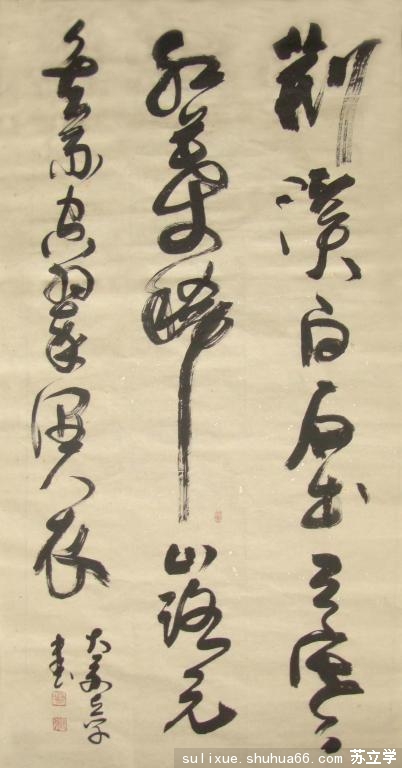 荆溪白石出天寒
紅葉稀山路元
無雨空翠濕人衣
立学
書
sulixue.shuhua66.com 苏立学